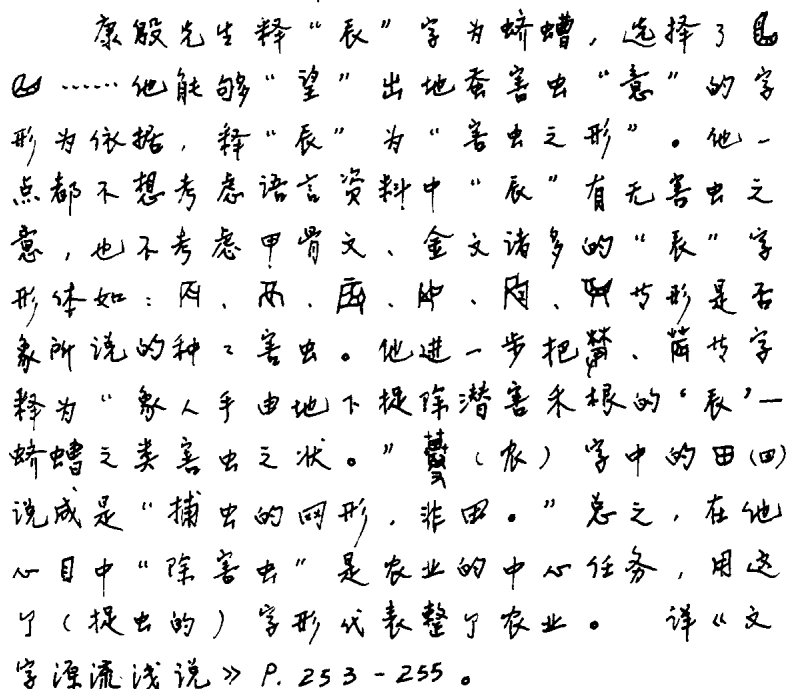 康殷先生释“辰”字为蛴螬，选择了
……他能够“望”出地蚕害虫“意”的字
形为依据，释“辰”为“害虫之形”。他一
点都不想考虑语言资料中“辰”有无害虫之
意，也不考虑甲骨文、金文诸多的“辰”字
形体如：、、、、、等形是否
象所说的种々害虫。他进一步把、等字
释为“象人手由地下捉除潜害禾根的‘辰’一
蛴螬之类害虫之状。”（农）字中的田(囬)
说成是“捕虫的网形，非田。”总之，在他
心目中“除害虫”是农业的中心任务，用这
个（捉虫的）字形代表整个农业。 详《文
字源流浅说》P. 253-255。